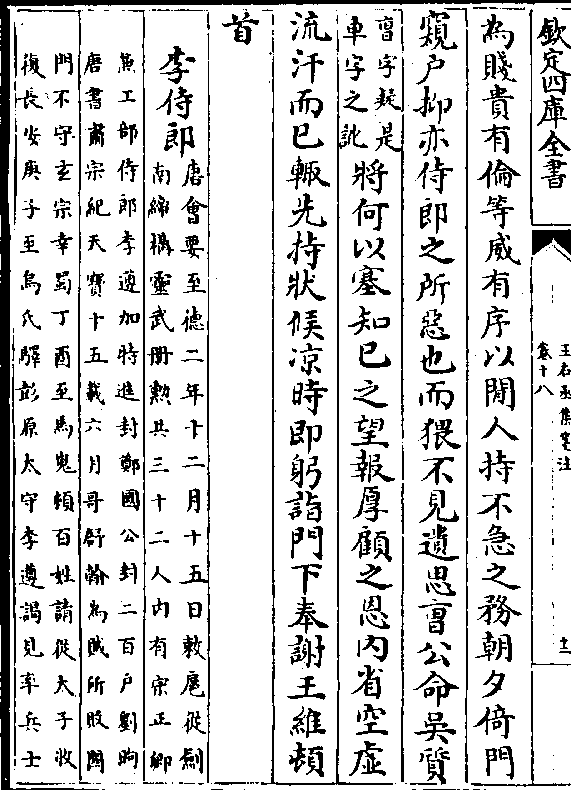 欽定四庫全書
王右丞集箋注
卷十八
十二
為賤貴有倫等威有序以閒人持不急之務朝夕倚門
窺户抑亦侍郎之所惡也而猥不見遺思曺公命吳質
曺字疑是
車字之訛
將何以塞知已之望報厚顧之恩内省空虛
流汗而已輙先持狀候凉時即躬詣門下奉謝王維頓
首
李侍郎
唐會要至德二年十二月十五日敕扈從劍
南締構靈武册勲共三十二人内有宗正卿
兼工部侍郎李遵加特進封鄭國公封二百户劉昫
唐書肅宗紀天寶十五載六月哥舒翰為賊所敗關
門不守玄宗幸蜀丁酉至馬嵬頓百姓請從太子收
復長安庚子至烏氏驛彭原太守李遵謁見率兵士